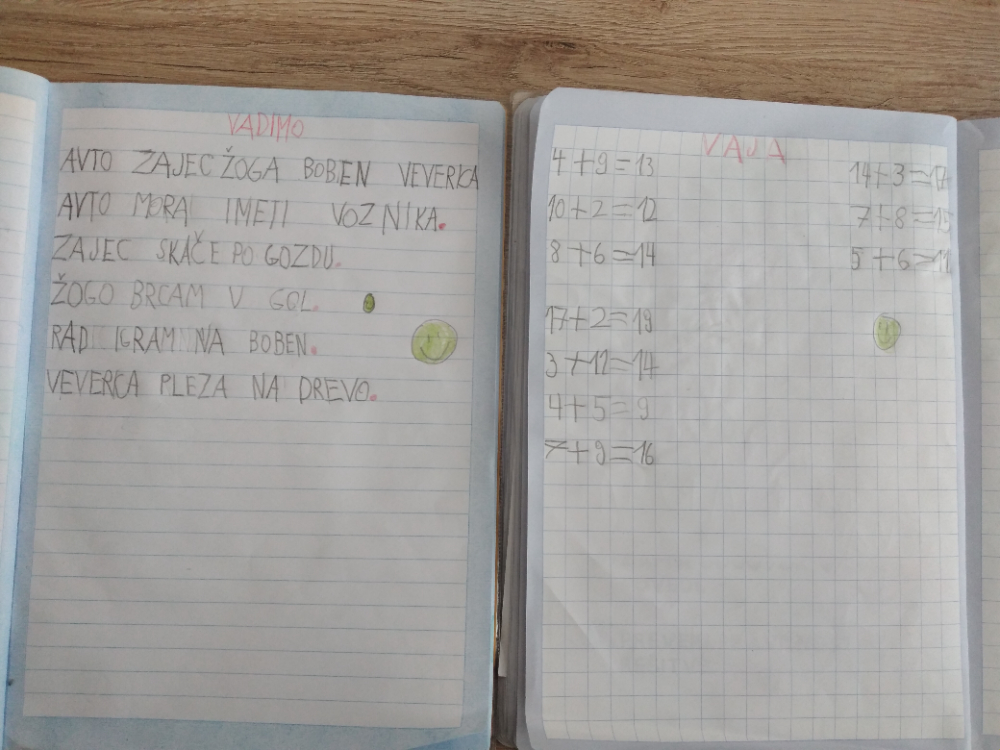 VADIMO
AVTO ZAJEC ŽOGA BOBEN VEVERICA
AVTO MORA IMETI VOZNIKA.
ZAJEC SKAČE PO GOZDU.
ŽOGO BRCAM V GOL.
RAD IGRAM NA BOBEN.
VEVERCA PLEZA NA DREVO.
VAJA
4+9=13
10+2=12
8+6=14
17+2=19
3+12=14
4+5=9
7+9=16
14+3=17
7+8=15
5+6=11